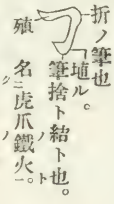 折ノ筆也
埴ル。
筆捨ト結ト也。
殖
名ニ虎爪鐵火。